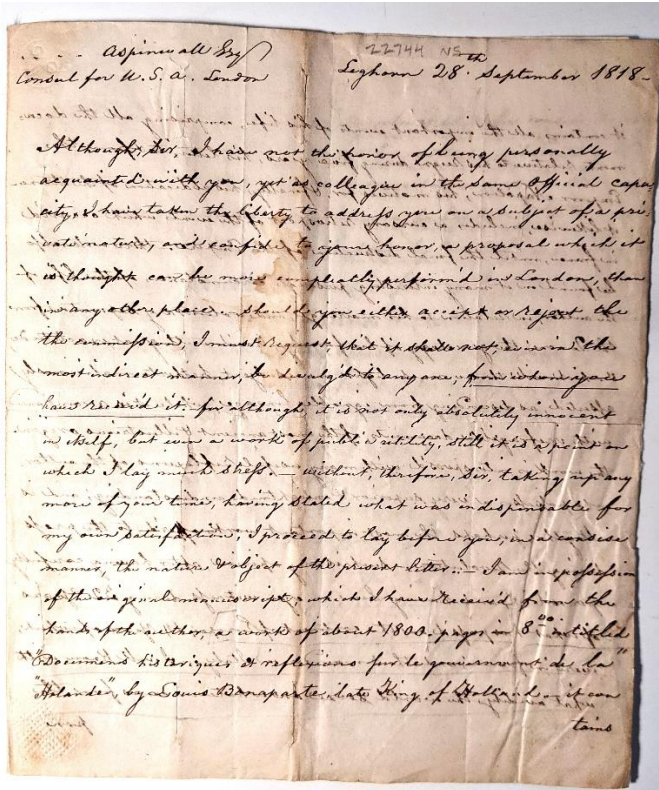 Aspinwall Esq
22744 NS
Consul for U.S.A. London
Leghorn 28th September 1818-
Although, Sir, I have not the honor of being personally
acquainted with you, yet as colleague in the same official capa
city, I have taken the liberty to address you on a subject of a pri-
vate nature, and confide to your honor, a proposal which it
is thought can be more compleatly perform'd in London, than
in any other place - should you either accept or reject the
the commission, I must request, that it shall not, even in the
most indirect manner, be divulg'd to any one, from whom you
have receiv'd it. for although, it is not only absolutely innocent
in itself, but even a work of public utility, still it is a point on
which I lay much stress. - without, therefore, Sir, taking up any
more of your time, having stated what was indispensable for
my own satisfaction, I proceed to lay before you, in a consise
manner, the nature & object of the present letter. - I am in possession
of the original manuscript, which I have receiv'd from the
hands of the author, a work of about 1800 pages in 8vo intitled
"Documens historiques et reflexions sur le gouvernment de la"
"Holande" by Louis Bonaparte late King of Holland - it con
tains